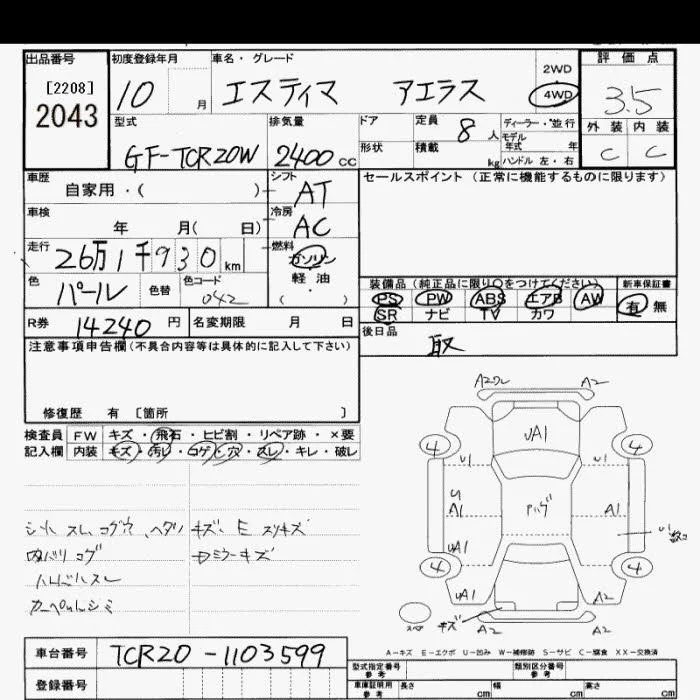 出品番号 初度登録年月 車名・グレード 2WD 評価点
[2208] 2043 10 月 エスティマ アエラス 4WD 3.5
型式 排気量 ドア 定員 8 人 ディーラー・並行 外装 内装
GF-TCR20W 2400 cc 形状 積載 kg モデル年式 年 ハンドル 左・右 C C
車歴 自家用・( ) シフト AT セールスポイント(正常に機能するものに限ります)
車検 年 月( 日) 冷房 AC
走行 26万1千930 km 燃料 ガソリン
色 パール 色替 色コード 042 軽油 ( )
装備品(純正品に限り○をつけてください) 新車保証書
PS PW ABS エアB AW 有 無
SR ナビ TV カワ
R券 14240 円 名変期限 月 日 後日品 取
注意事項申告欄(不具合内容等は具体的に記入して下さい)
修復歴 有 [箇所 ]
検査員 FW キズ・飛石・ヒビ割・リペア跡・×要
記入欄 内装 キズ・汚レ・コゲ・穴・スレ・キレ・破レ
キズ、E スリキズ
カーペットシミ
A2 A2
UA1
4 4
U1 U1
U A1 A1
UA1
4 4
UA1 A2
キズ A2 A2
A-キズ E-エクボ U-凹み W-補修跡 S-サビ C-腐食 XX-交換済
車台番号 TCR20-1103599
登録番号
型式指定番号 参考 類別区分番号 参考
車庫証明用 参考 長さ cm 幅 cm 高さ cm